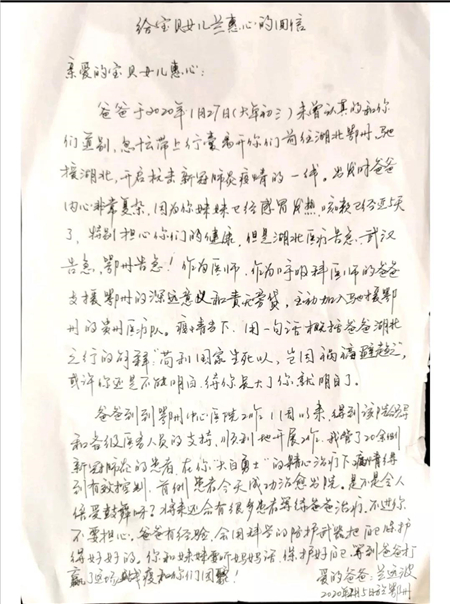 给宝贝女儿兰惠心的回信
亲爱的宝贝女儿惠心：
爸爸于2020年1月27日(大年初三)未曾认真的和你
们道别，匆忙带上行囊离开你们前往湖北鄂州，驰
援湖北，开启抗击新冠肺炎疫情的一线。出发时爸爸
内心非常复杂，因为你妹妹已经感冒发热、咳嗽已经三天
了，特别担心你们的健康，但是湖北医疗告急，武汉
告急，鄂州告急！作为医师，作为呼吸科医师的爸爸
支援鄂州的深远意义和责无旁贷，主动加入驰援鄂
州的贵州医疗队。疫情当下，用一句话概括爸爸湖北
之行的解释“苟利国家生死以，岂因祸福避趋之”，
或许你还是不能明白，待你长大了你就明白了。
爸爸到到鄂州中心医院工作11日以来，得到该院领导
和各级医务人员的支持，顺利地开展工作，我管了20余例
新冠肺炎的患者，在你“大白勇士”的精心治疗下病情得
到有效控制，首例患者今天成功治愈出院。是不是令人
倍受鼓舞呀？将来还会有很多患者等待爸爸治疗，不过你
不要担心，爸爸有经验，会用科学的防护武装把自己保护
得好好的。你和妹妹要听妈妈话，保护好自己，等到爸爸打
赢了这场战疫和你们团聚！
爱的爸爸：兰远波
2020年2月5日于鄂州